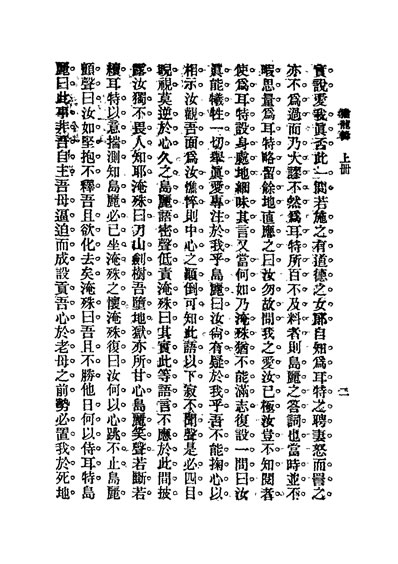 上册
二
實設愛我眞否此一問若施之有道德之女郎自知爲耳特之聘妻怒而詈之
亦不爲過而乃大謬不然爲耳特所百不及料者則島麗之答詞也當時並不
暇思量爲耳特略留餘地直應之曰汝勿故問我之愛汝已極汝豈不知閱者
使爲耳特設身處地細味其言又當何如乃淹殊猶不能滿志復設一問曰汝
眞能犧牲一切舉眞愛專注於我乎島麗曰汝尚有疑於我乎吾不能掬心以
相示汝觀吾面爲汝憔悴則中心之顚倒可知此語以下寂不聞聲是必四目
睨視莫逆於心久之島麗語密聲低責淹殊曰其實此等語言不應於此間披
露汝獨不畏人知耶淹殊曰刀山劍樹吾墮地獄亦所甘心島麗笑聲若斷若
續耳特以意揣測知島麗必已坐淹殊之懷淹殊復曰汝何以心跳不止島麗
顫聲曰汝如堅抱不釋吾且欲化去矣淹殊曰吾且不勝他日何以侍耳特島
麗曰此事非吾自主吾母逼迫而成設貢吾心於老母之前勢必置我於死地